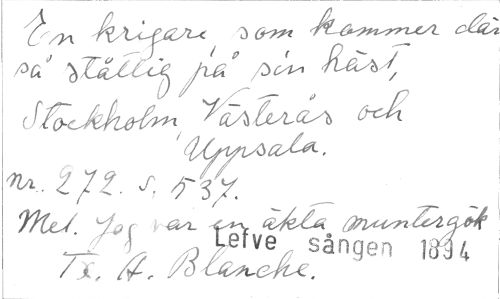 En krigare, som kommer där
så ståttlig på sin häst,
Stockholm, Västerås och
Uppsala.
nr. 272. s. 537.
Mel. Jag var en äkta muntergök
Lefve sången 1894
Tx. A. Blanche.